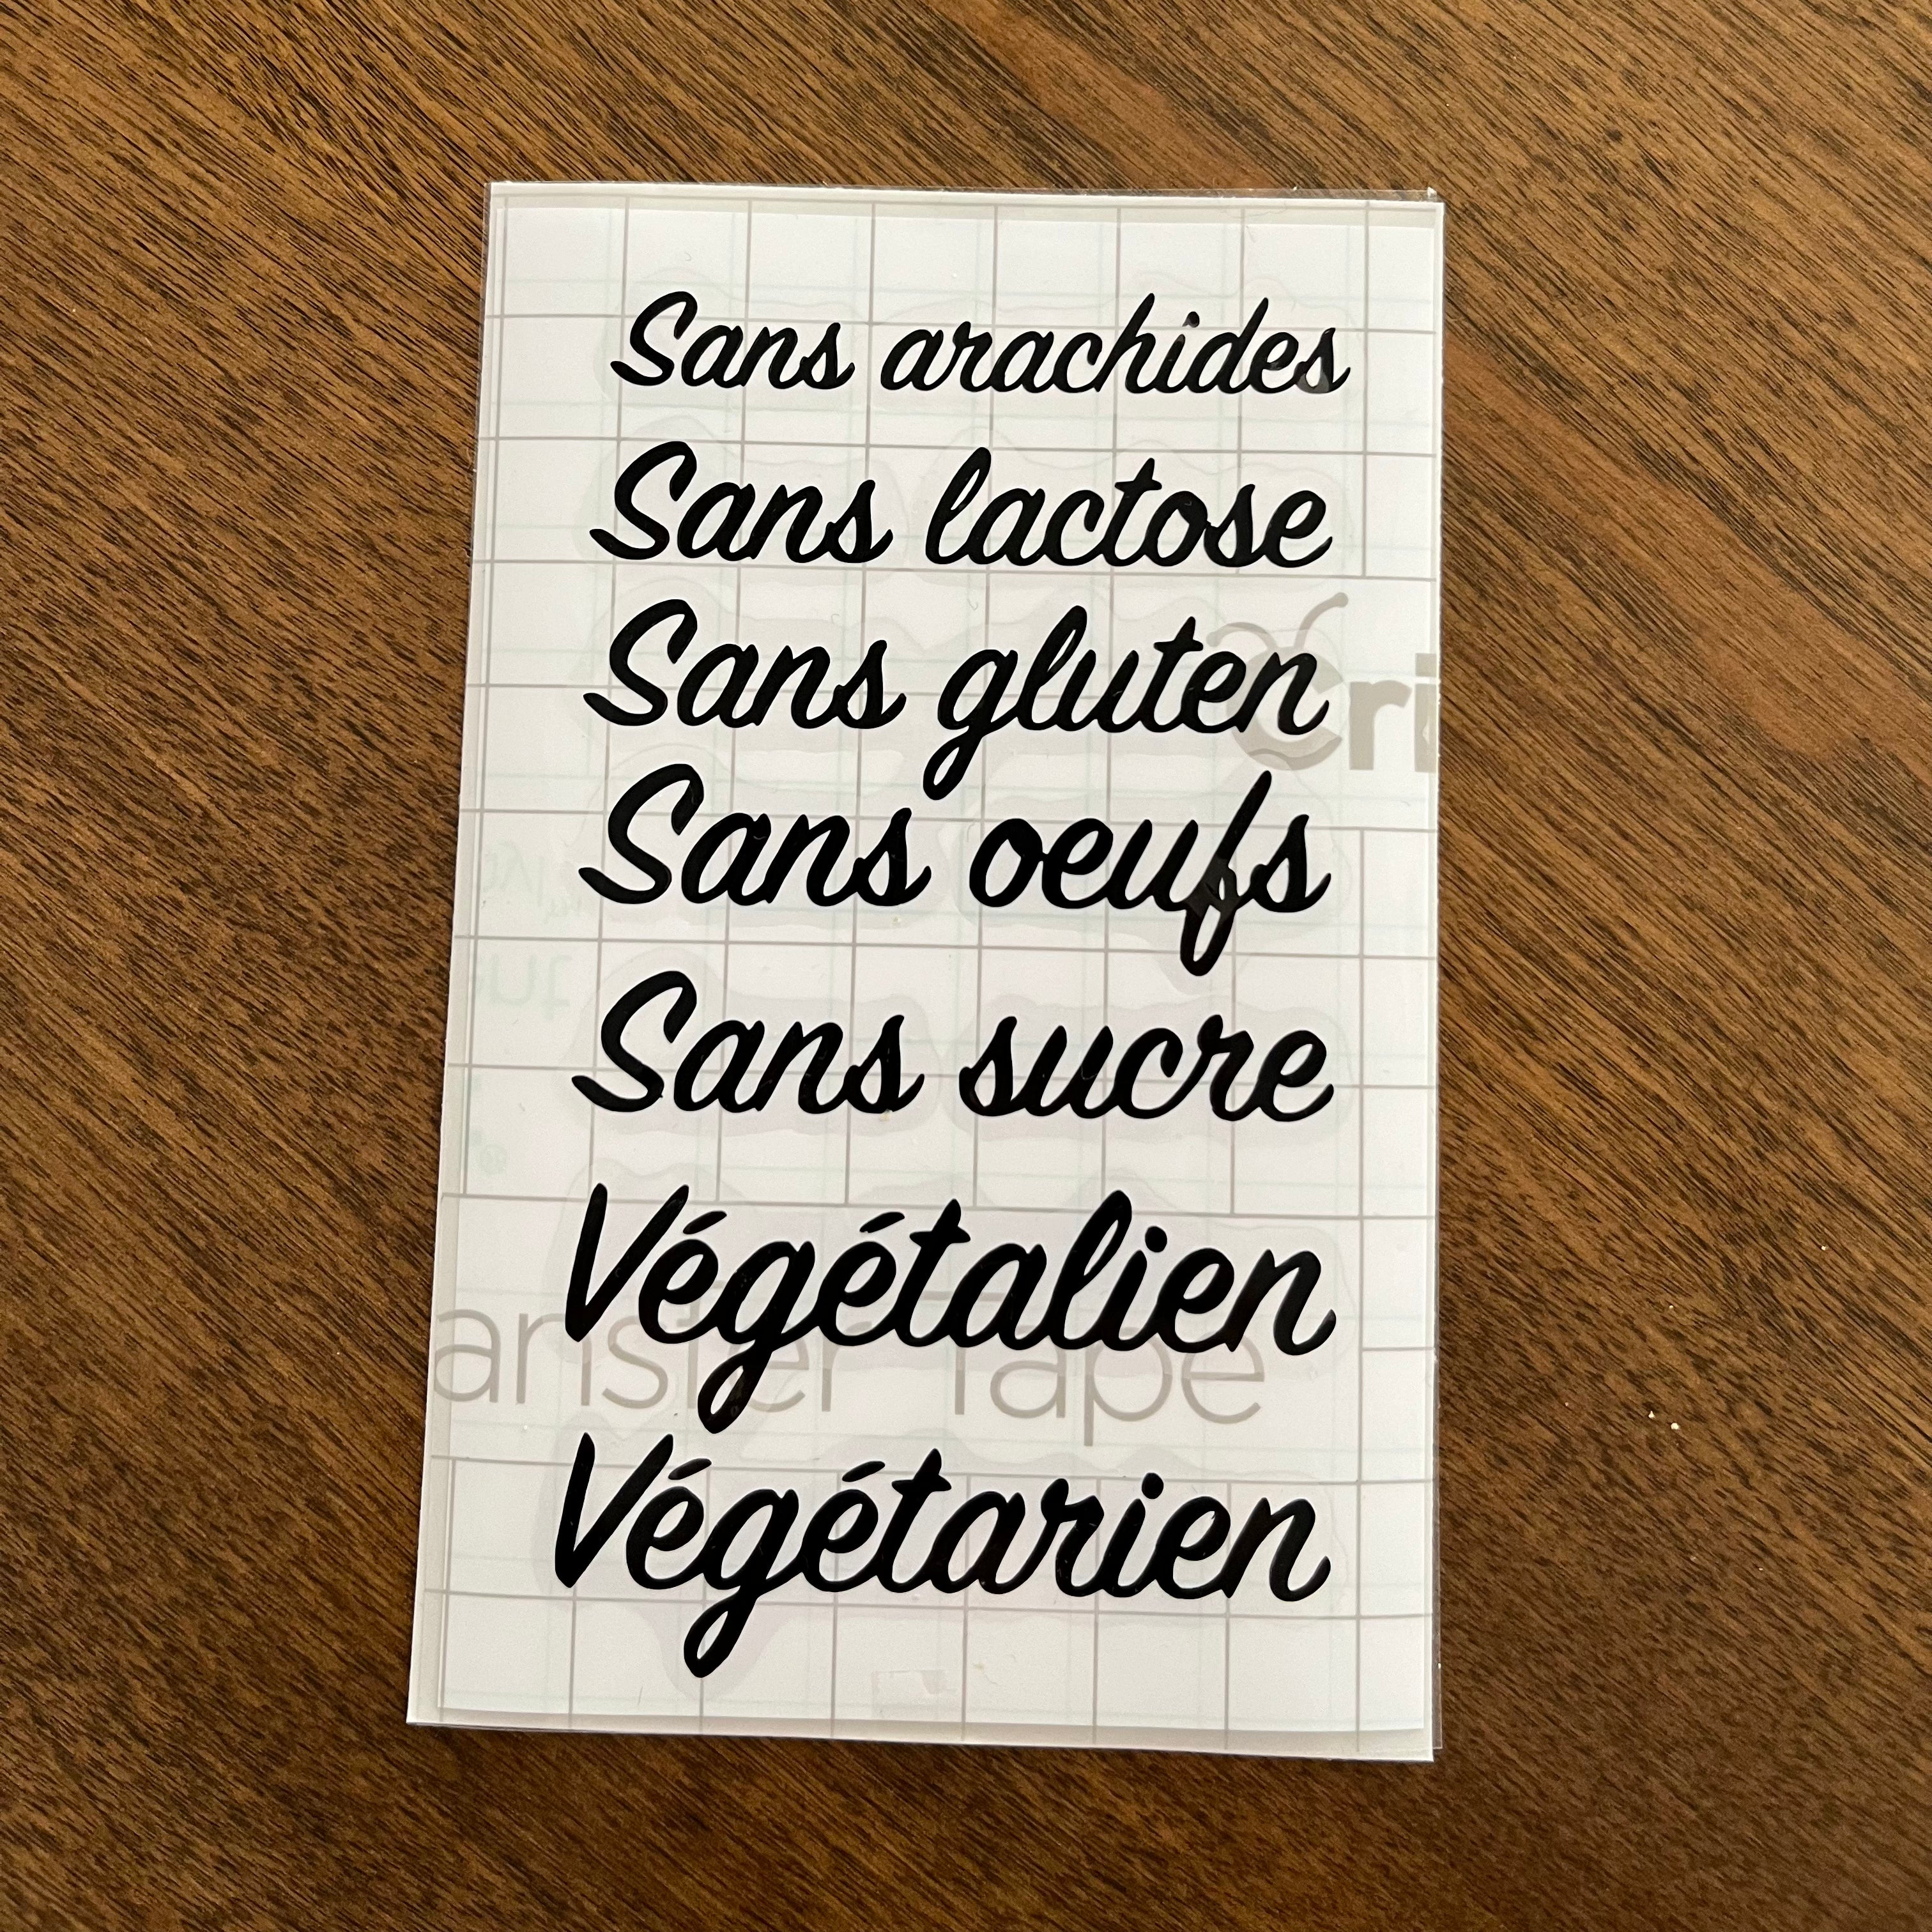 Sans arachides
Sans lactose
Sans gluten
Cri
Sans oeufs
Sans sucre
Végétalien
ansfer Tape
Végétarien